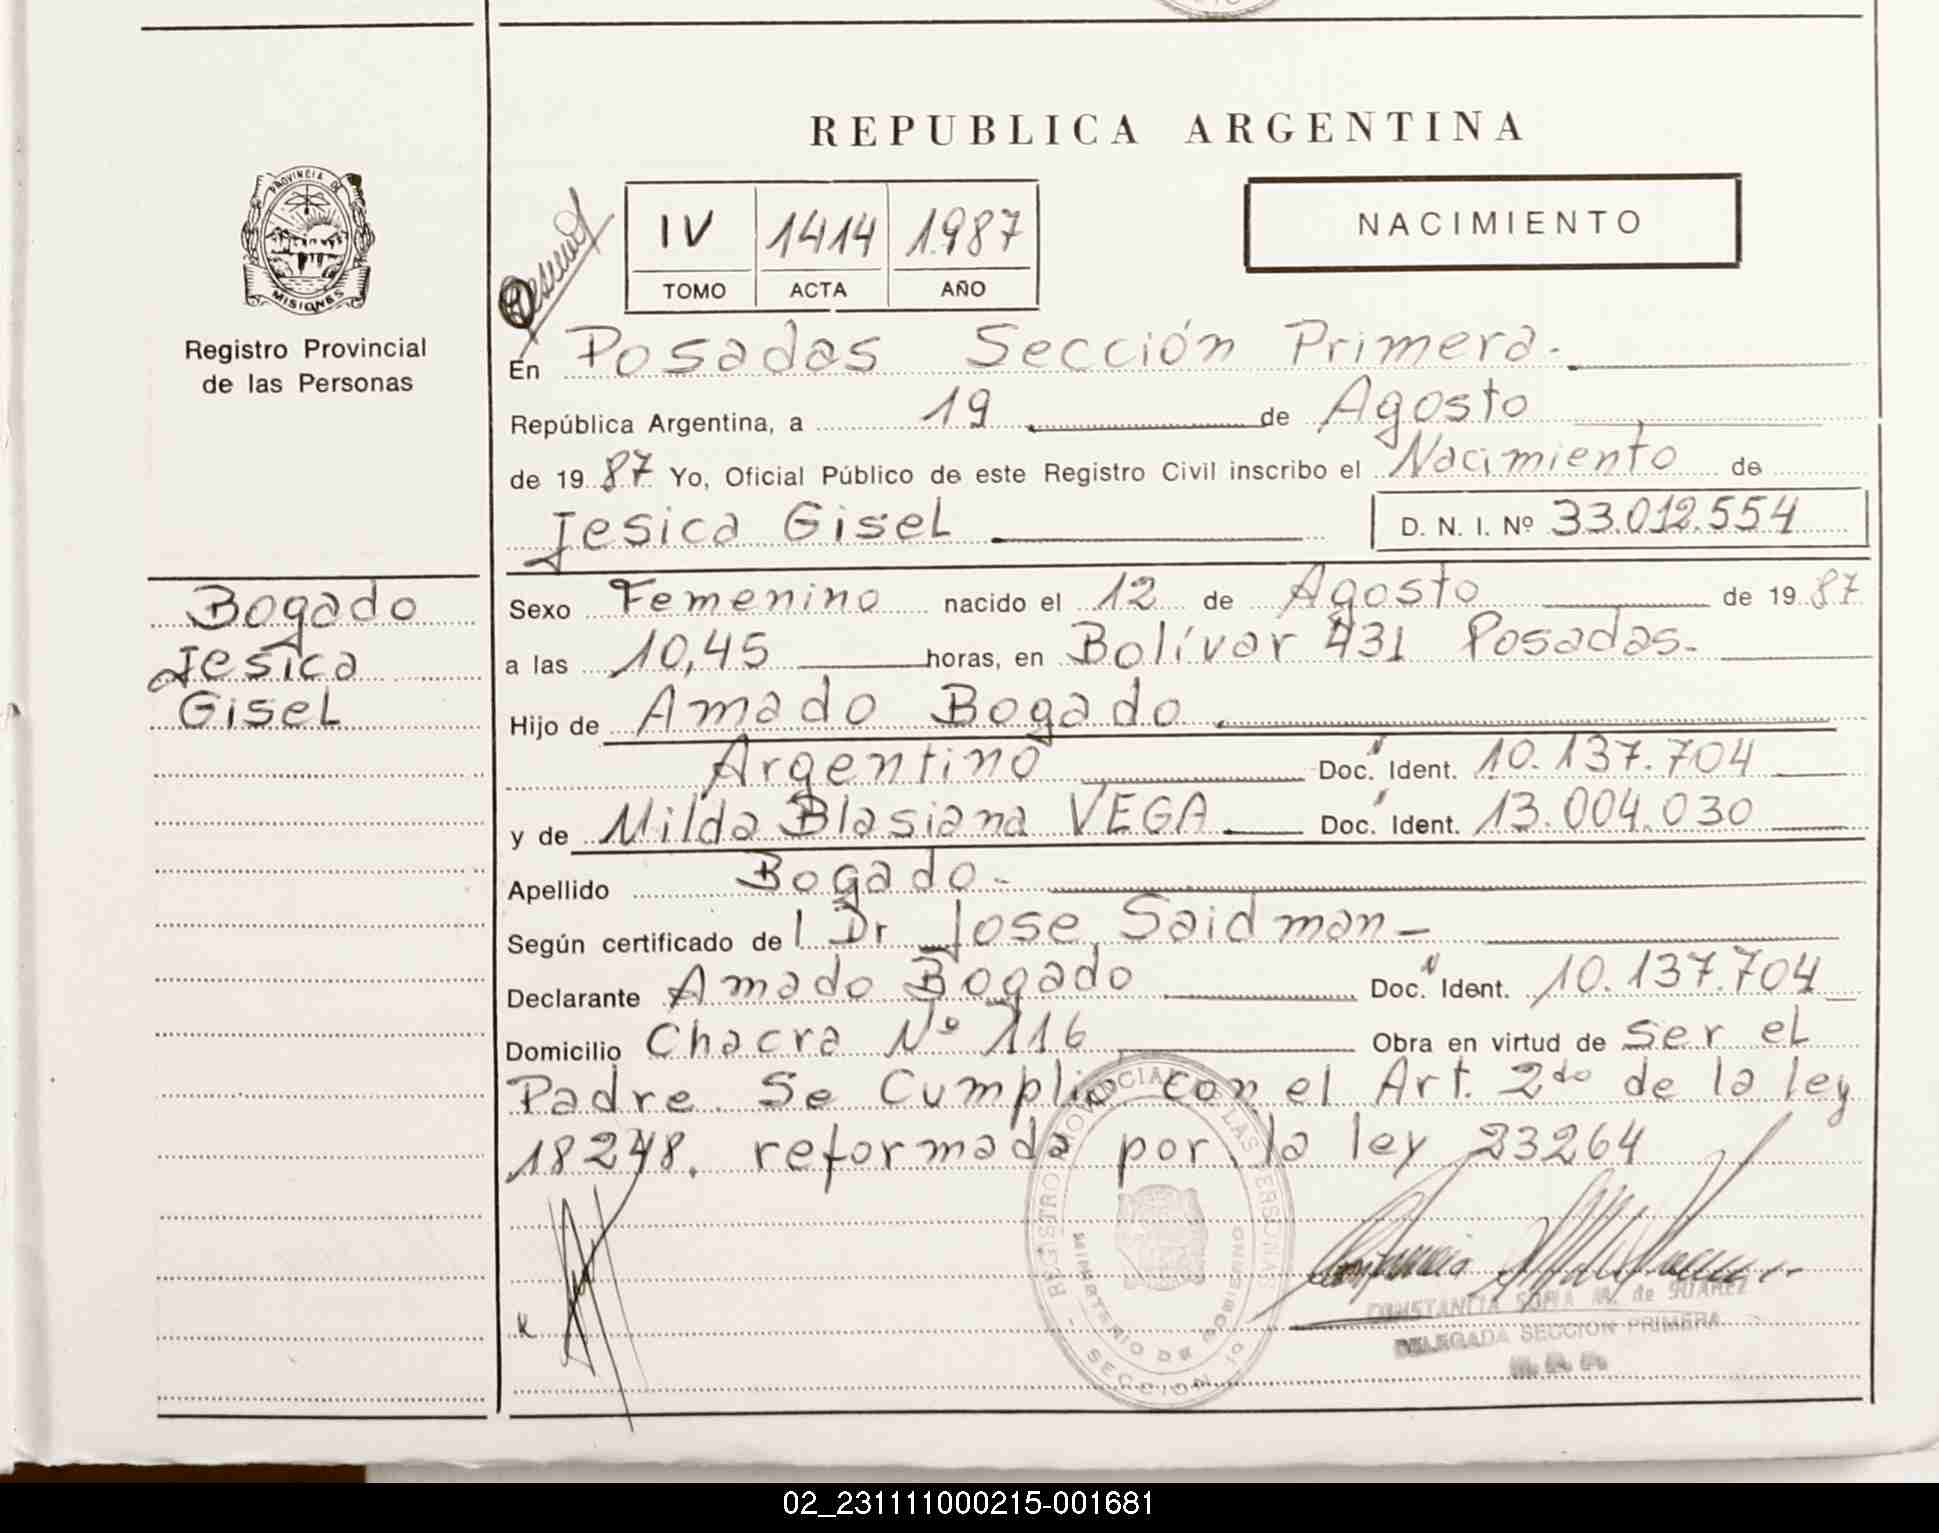 REPUBLICA ARGENTINA
PROVINCIA DE
MISIONES
Registro Provincial
de las Personas
IV 1414 1987
TOMO ACTA AÑO
NACIMIENTO
En Posadas Sección Primera.
República Argentina, a 19 de Agosto
de 19 87 Yo, Oficial Público de este Registro Civil inscribo el Nacimiento de
Jesica Gisel D. N. I. Nº 33.012.554
Bogado
Jesica
Gisel
Sexo Femenino nacido el 12 de Agosto de 19 87
a las 10,45 horas, en Bolívar 431 Posadas.
Hijo de Amado Bogado
Argentino Doc. Ident. 10.137.704
y de Milda Blasiana VEGA Doc. Ident. 13.004.030
Apellido Bogado.
Según certificado de l Dr Jose Saidman
Declarante Amado Bogado Doc. Ident. 10.137.704
Domicilio Chacra Nº 116 Obra en virtud de ser el
Padre. Se Cumplio con el Art. 2do de la ley
18248. reformada por la ley 23264
REGISTRO PROVINCIAL DE LAS PERSONAS
MINISTERIO DE GOBIERNO
SECCION 1º
CONSTANCIA SOFIA M. de SUAREZ
DELEGADA SECCION PRIMERA
02_231111000215-001681